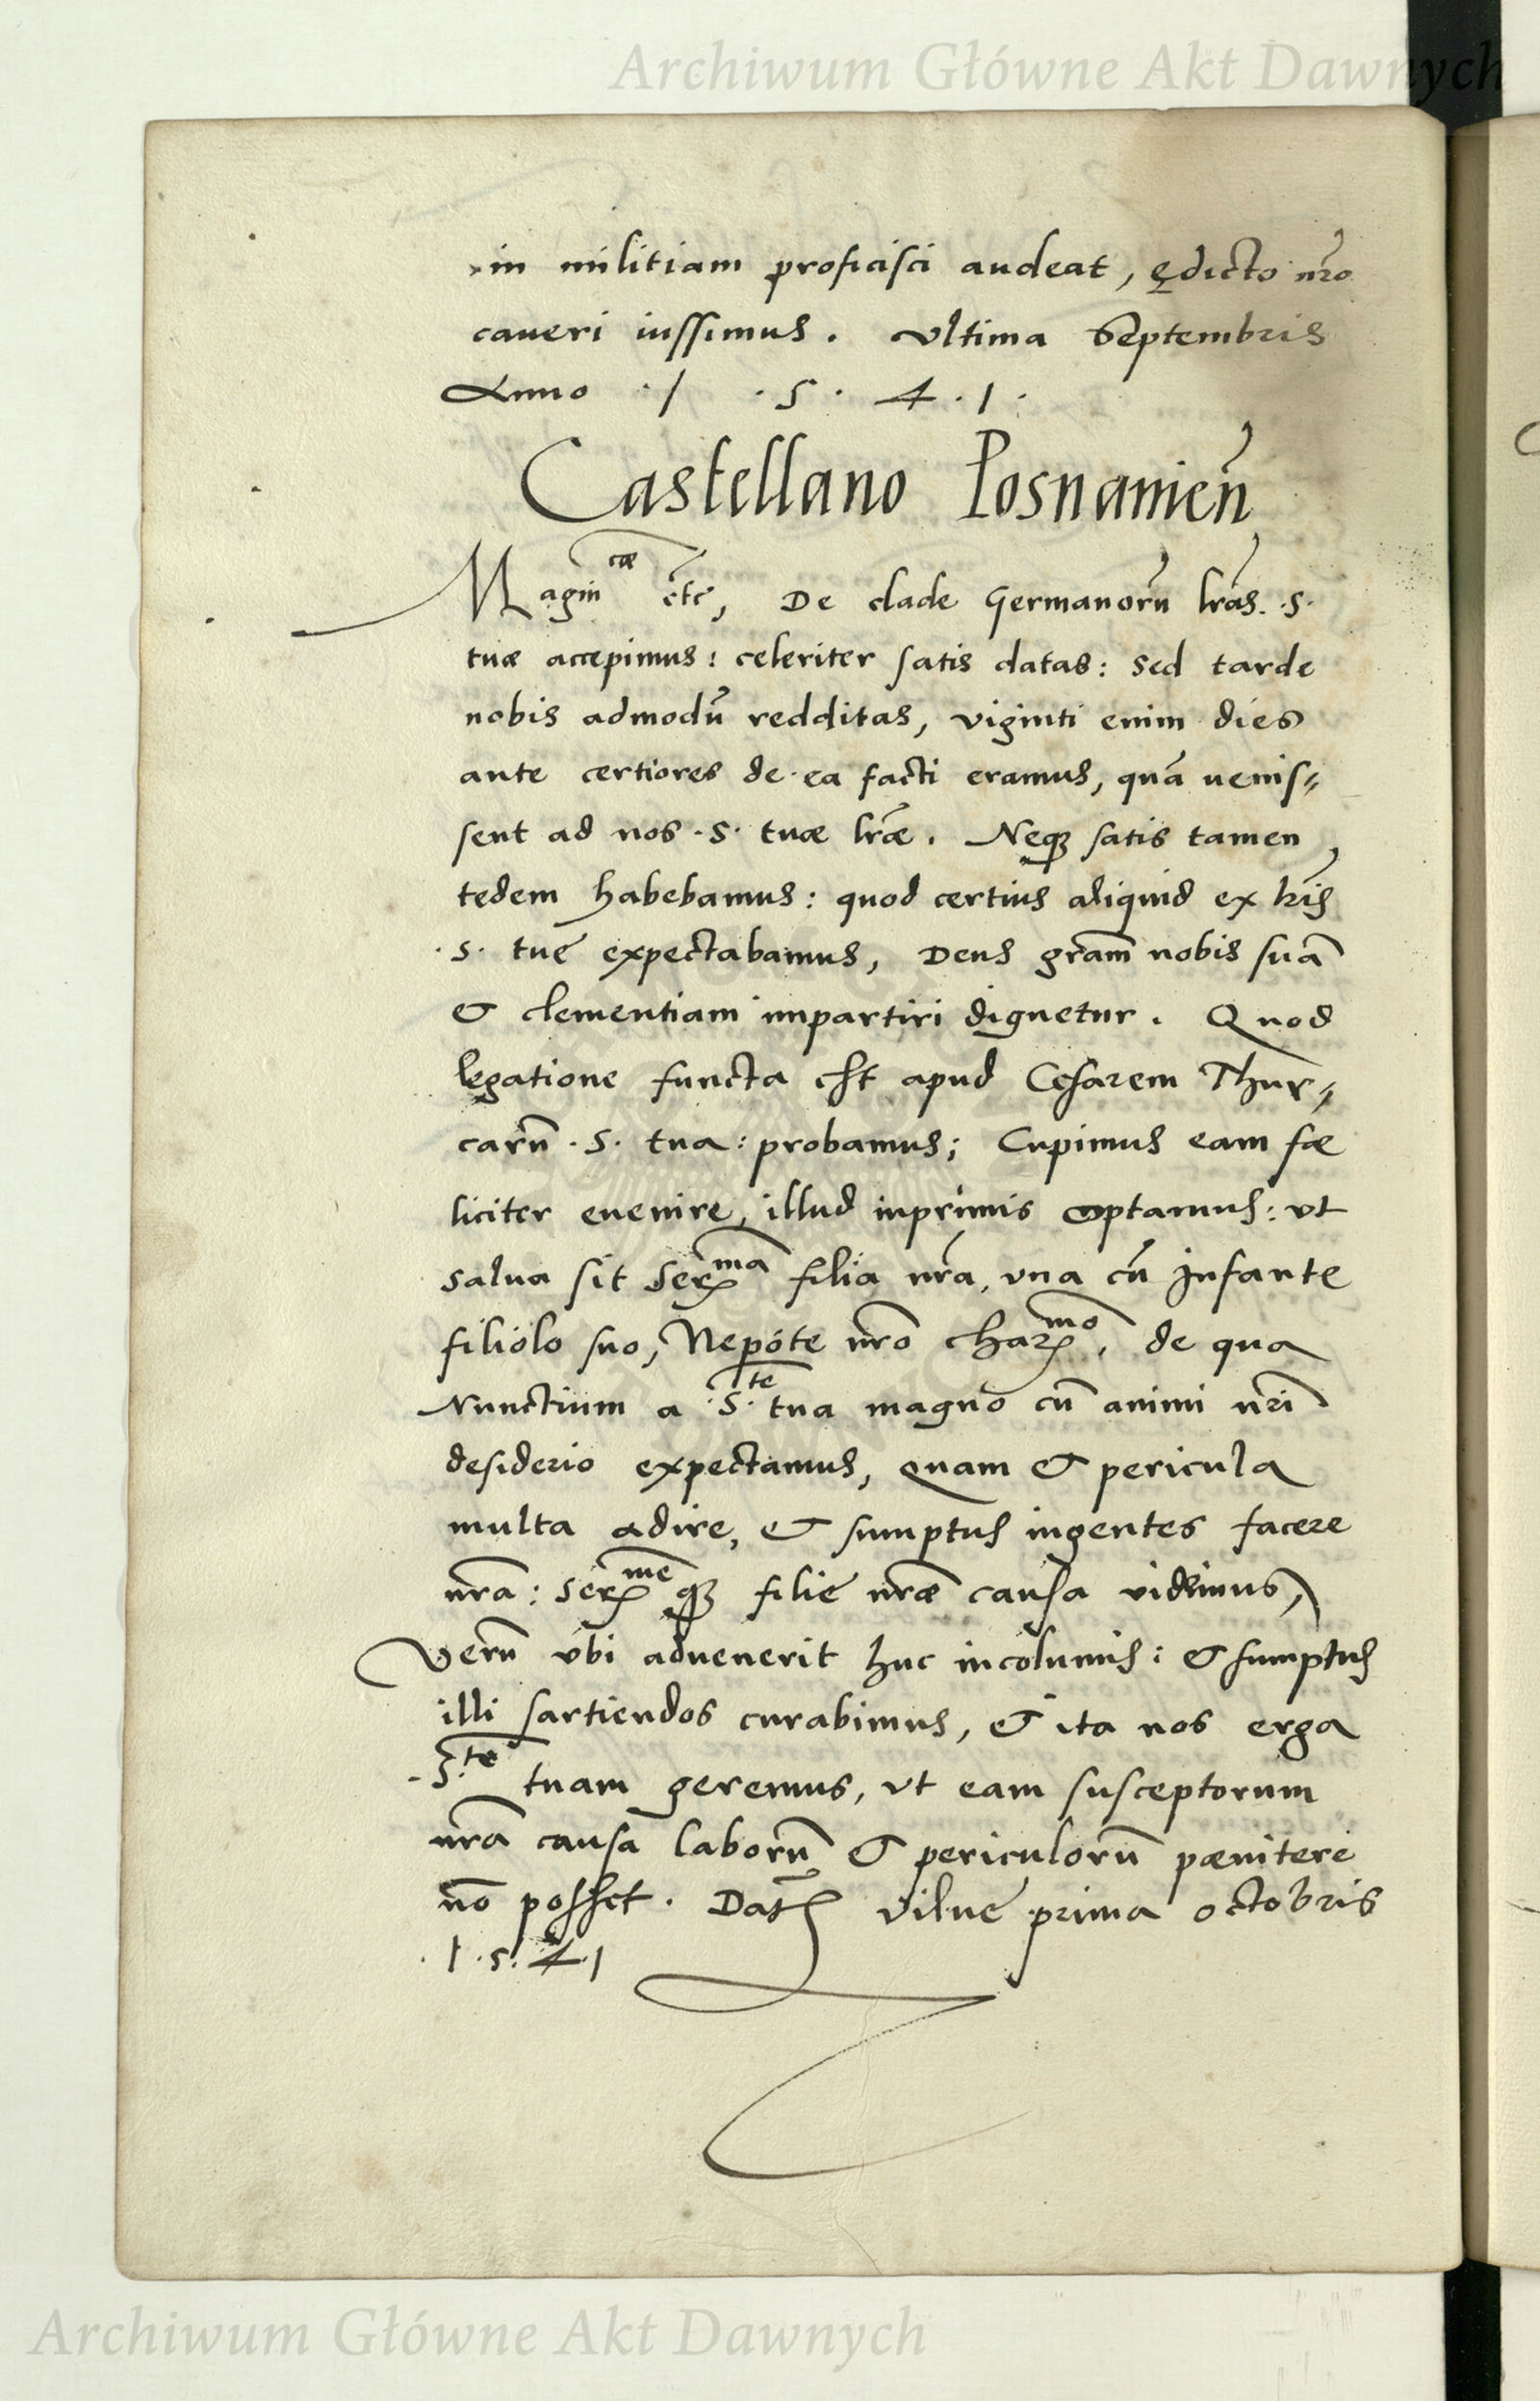 Archiwum Główne Akt Dawnych
in militiam proficisci audeat, ędicto nr̃o
caueri iussimus. Vltima Septembris
Anno ·1 ·5· 4·1·
Castellano Posnanien̄
Magin᷈cæ etc̃, De clade Germanorũ lr̃as ·S·
tuæ accepimus: celeriter satis datas: sed tarde
nobis admodũ redditas, viginti enim dies
ante certiores de ea facti eramus, quã uenis⸗
sent ad nos ·S· tuæ lr̃æ. Neqꝫ satis tamen
tedem habebamus: quod certius aliquid ex lr̃is
·S· tue expectabamus, Deus gr̃am nobis suã
& clementiam impartiri dignetur. Quod
legatione functa est apud Cesarem Thur⸗
carũ ·S· tua: probamus; Cupimus eam fæ
liciter euenire, illud inprimis optamus: vt
salua sit Ser^ma filia nr̃a, vna cũ Infante
filiolo suo, Nepote nr̃o char^mo, de qua
Nunctium a ·S·^te tua magno cũ animi nr̃i
desiderio expectamus, quam & pericula
multa adire, & sumptus ingentes facere
nr̃a: Ser^me qꝫ filie nr̃æ causa vidimus,
Verũ vbi aduenerit huc incolumis: & sumptus
illi sartiendos curabimus, & ita nos erga
·S·^te tuam geremus, vt eam susceptorum
nr̃a causa laborũ & periculorũ pænitere
nõ posset. Dat̃ Vilne prima octobris
·1·5·4·1
Archiwum Główne Akt Dawnych